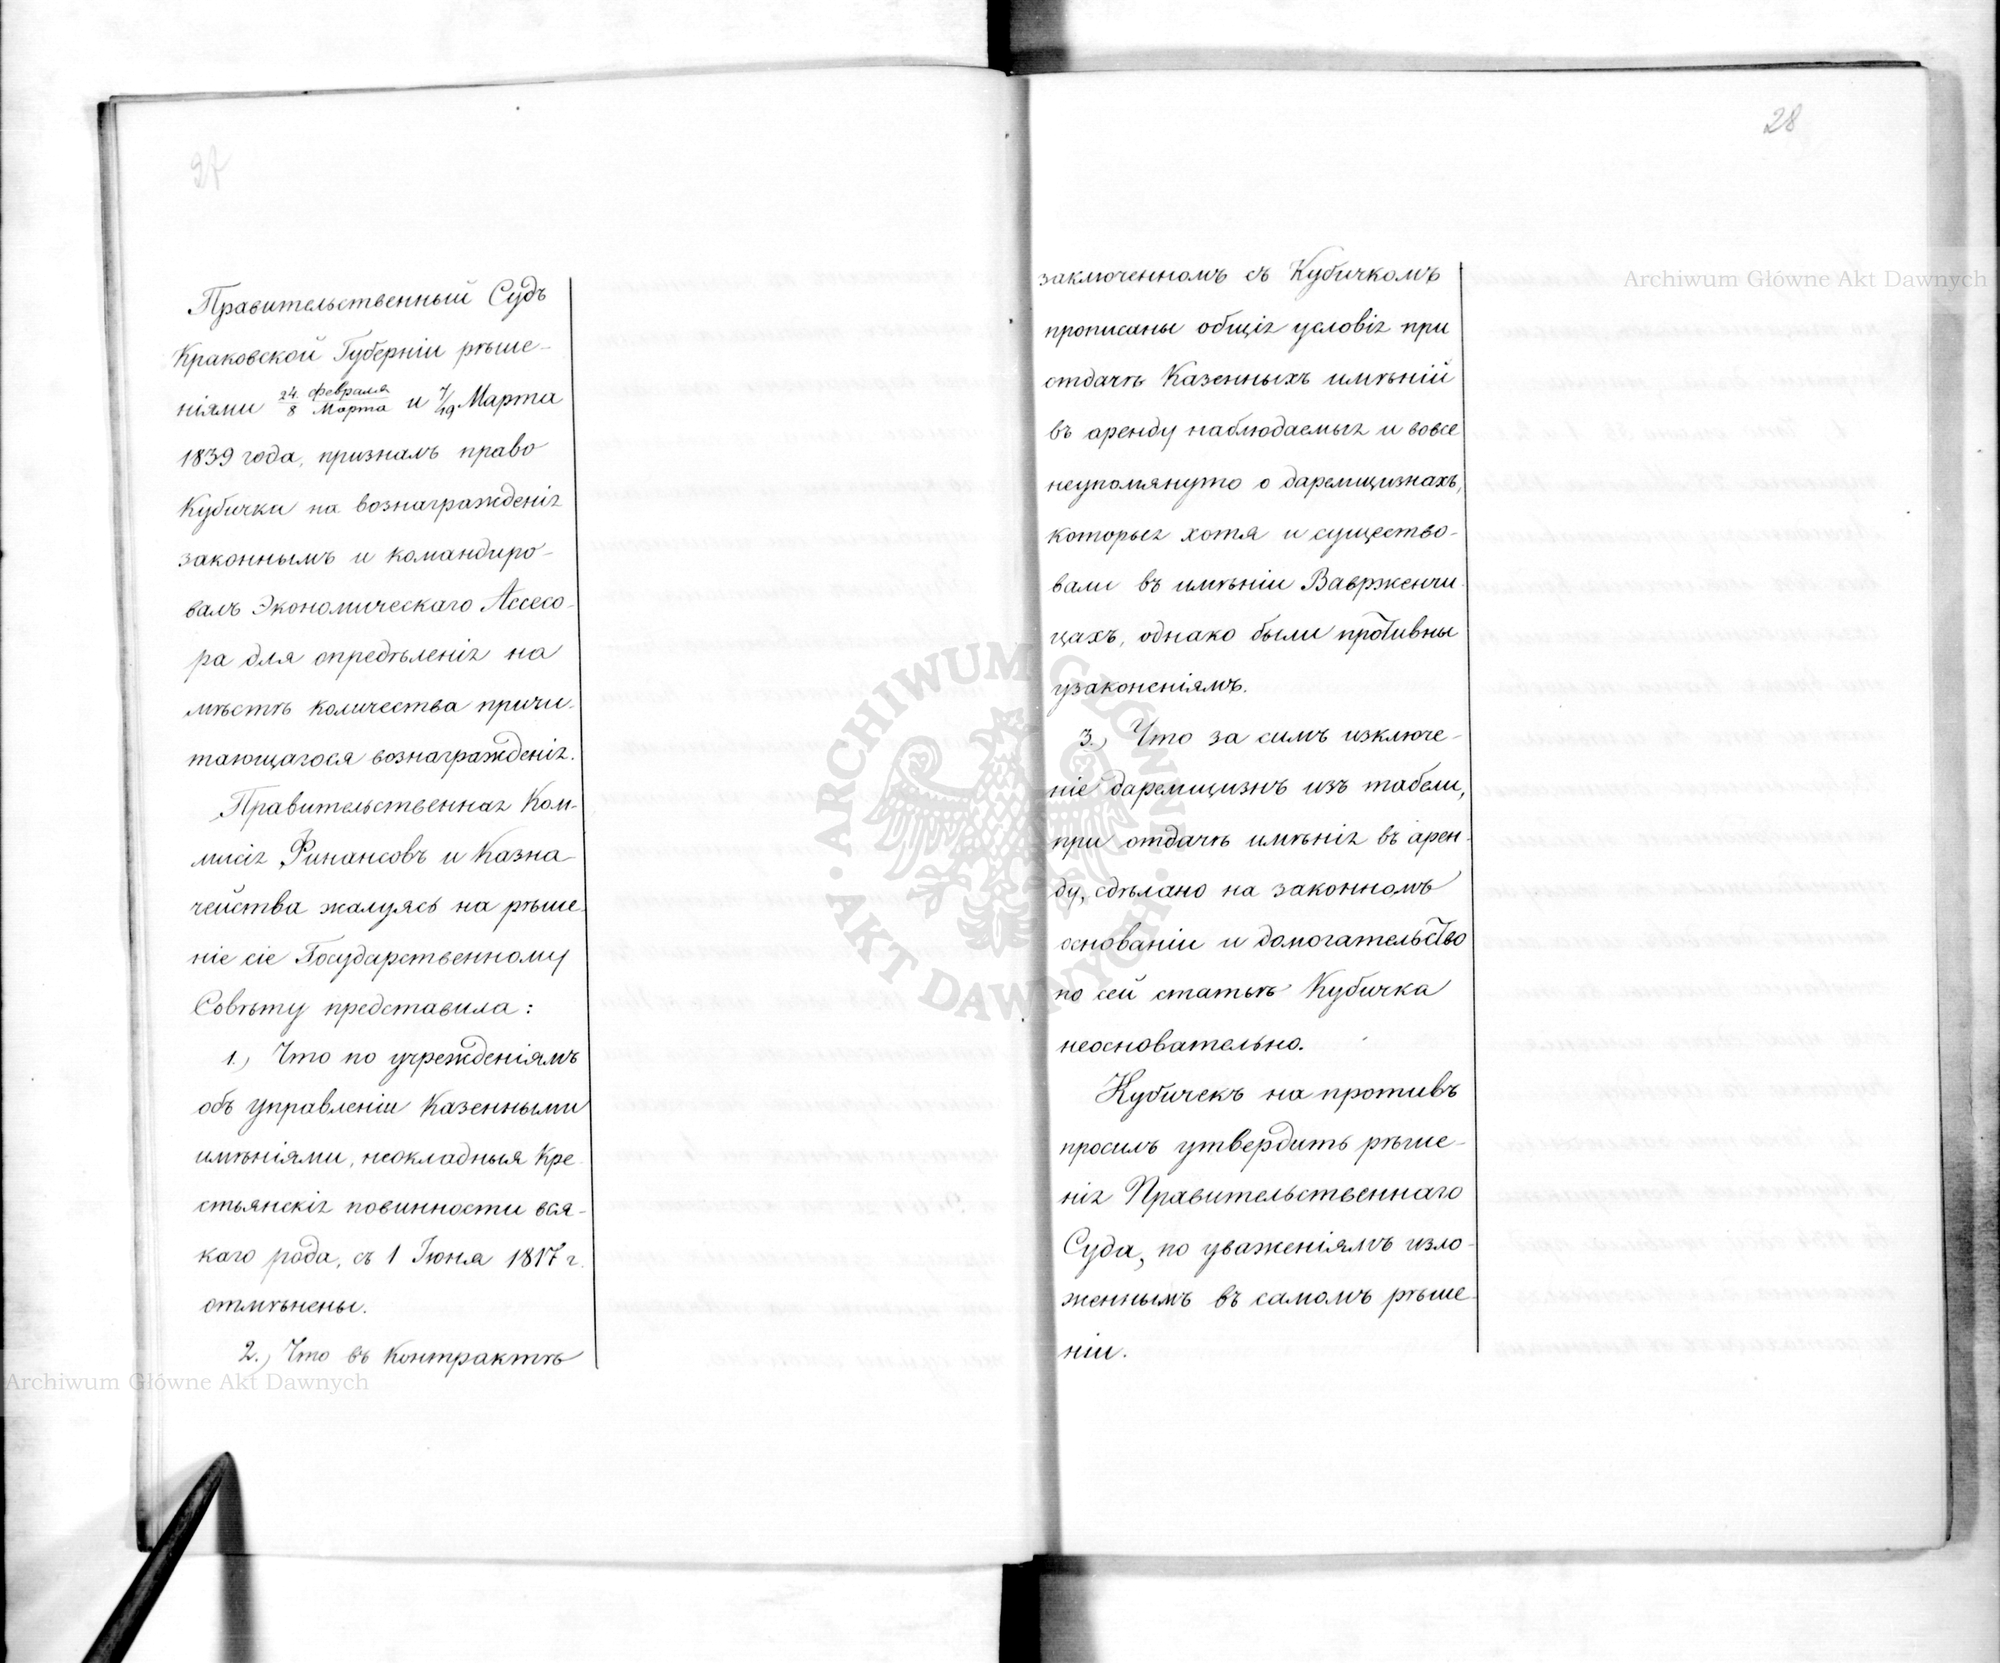 27
Правительственный Судъ
Краковской Губерніи рѣше-
ніями 24 февраля/8 Марта и 7/19 Марта
1839 года, призналъ право
Кубички на вознагражденія
законнымъ и командиро-
валъ Экономическаго Ассесо-
ра для опредѣленія на
мѣстѣ количества причи-
тающагося вознагражденія.
Правительственная Ком-
мисія Финансовъ и Казна-
чейства жалуясь на рѣше-
ніе сіе Государственному
Совѣту представила:
1.) Что по учрежденіямъ
объ управленіи Казенными
имѣніями, неокладныя Кре-
стьянскія повинности вся-
каго рода, съ 1 Іюня 1817 г.
отмѣнены.
2.) Что въ Контрактѣ
28
заключенномъ съ Кубичкомъ
прописаны общія условія при
отдачѣ Казенныхъ имѣній
въ аренду наблюдаемыя и вовсе
неупомянуто о даремщизнахъ,
которыя хотя и существо-
вали въ имѣніи Вавржечи-
цахъ, однако были противны
узаконеніямъ.
3.) Что за симъ изключе-
ніе даремщизнъ изъ табели,
при отдачѣ имѣнія въ арен-
ду, сдѣлано на законномъ
основаніи и домогательство
по сей статьѣ Кубичка
неосновательно.
Кубичекъ на противъ
просилъ утвердить рѣше-
нія Правительственнаго
Суда, по уваженіямъ изло-
женнымъ въ самомъ рѣше-
ніи.
Archiwum Główne Akt Dawnych
Archiwum Główne Akt Dawnych
· ARCHIWUM GŁÓWNE · AKT DAWNYCH